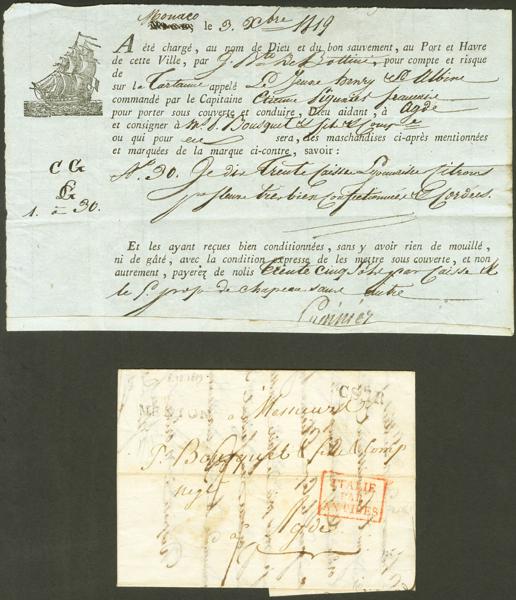 Monaco
le 3. Xbre 1819
A été chargé, au nom de Dieu et du bon sauvement, au Port et Havre
de cette Ville, par J. Bte pour compte et risque
de
sur la Tartanne appelé Le Jeune henry & Albine
commandé par le Capitaine français
pour porter sous couverte et conduire, Dieu aidant, à Agde
et consigner à Bousquet & fils & Comp
ou qui pour eux sera, des marchandises ci-après mentionnées
et marquées de la marque ci-contre, savoir :
C C
N. 30. Je dis Trente Caisses Citrons
1. à 30.
très bien Conditionnées & Cordées
Et les ayant reçues bien conditionnées, sans y avoir rien de mouillé,
ni de gâté, avec la condition expresse de les mettre sous couverte, et non
autrement, payerez de nolis trente cinq par Caisse &
le de chapeau sans autre
C S 2 R
MENTON
a Messieurs
Bousquet & fils & Comp
negts
ITALIE
PAR
ANTIBES
a Agde